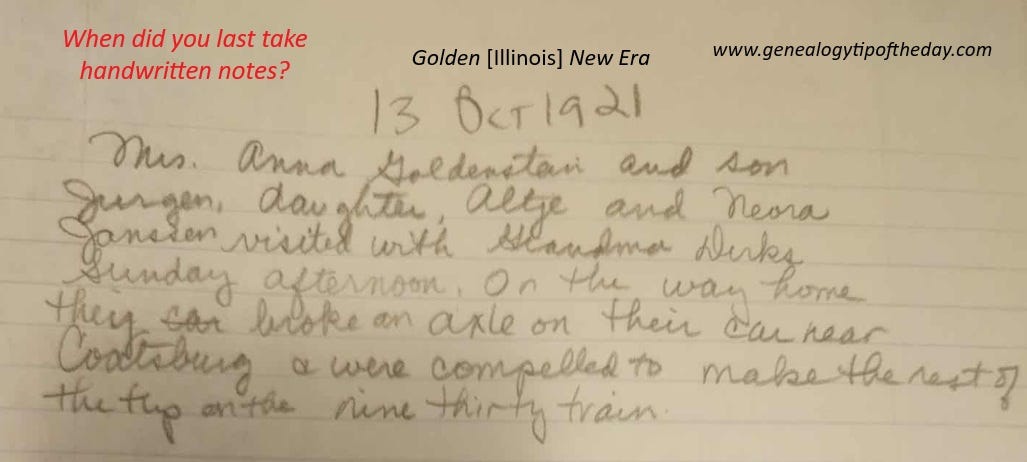 When did you last take
handwritten notes?
Golden [Illinois] New Era
www.genealogytipoftheday.com
13 Oct 1921
Mrs. Anna Goldenstein and son
Jurgen, daughter, Altje and Neora
Janssen visited with Grandma Dirks
Sunday afternoon. On the way home
they car broke an axle on their car near
Coatsburg & were compelled to make the rest of
the trip on the nine thirty train.